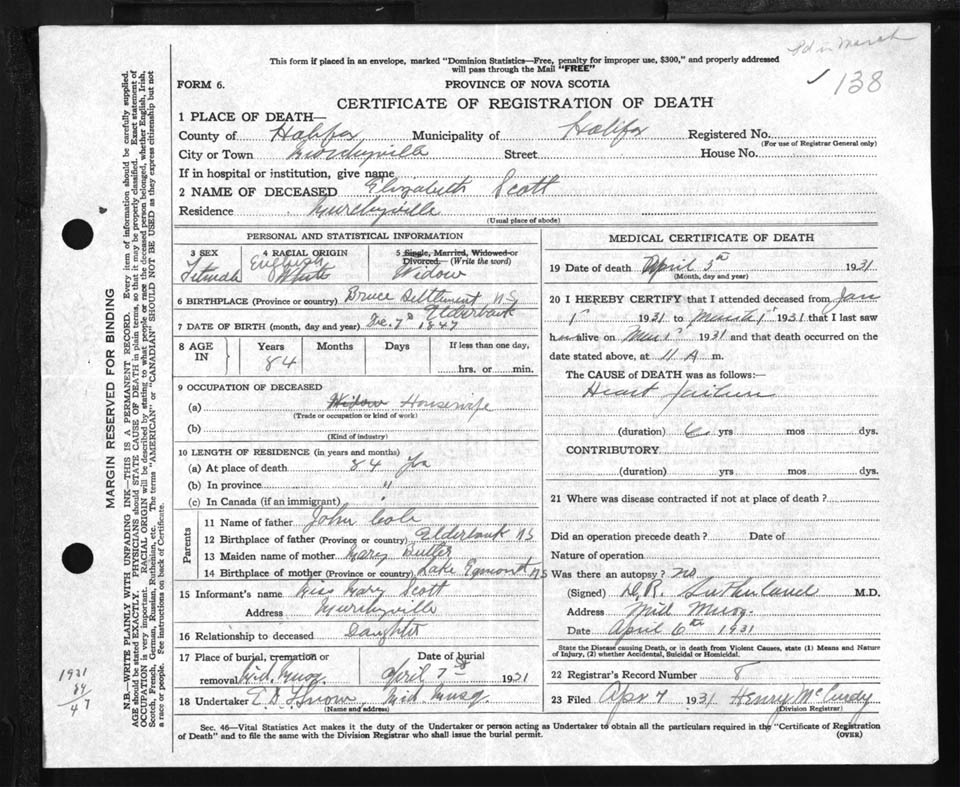 138
This form if placed in an envelope, marked "Dominion Statistics—Free, penalty for improper use, $300," and properly addressed
will pass through the Mail "FREE"
FORM 6.
PROVINCE OF NOVA SCOTIA
CERTIFICATE OF REGISTRATION OF DEATH
1 PLACE OF DEATH—
County of Halifax Municipality of Halifax Registered No.
(For use of Registrar General only)
City or Town Street House No.
If in hospital or institution, give name
2 NAME OF DECEASED Elizabeth Scott
Residence Murchyville
(Usual place of abode)
PERSONAL AND STATISTICAL INFORMATION
3 SEX 4 RACIAL ORIGIN 5 Single, Married, Widowed or
Divorced. (Write the word)
Female English White Widow
6 BIRTHPLACE (Province or country) Bruce Settlement NS
Elderbank
7 DATE OF BIRTH (month, day and year) Dec. 7th 1847
8 AGE IN Years Months Days If less than one day,
84 hrs. or min.
9 OCCUPATION OF DECEASED
(a) Widow Housewife
(Trade or occupation or kind of work)
(b)
(Kind of industry)
10 LENGTH OF RESIDENCE (in years and months)
(a) At place of death 84 yrs
(b) In province "
(c) In Canada (if an immigrant)
Parents
11 Name of father John Cole
12 Birthplace of father (Province or country) Elderbank NS
13 Maiden name of mother Mary Butler
14 Birthplace of mother (Province or country) Lake Egmont NS
15 Informant's name Miss Mary Scott
Address Murchyville
16 Relationship to deceased Daughter
17 Place of burial, cremation or Date of burial
removal Mid. Musq. April 7th 1931
18 Undertaker Mid. Musq.
(Name and address)
MEDICAL CERTIFICATE OF DEATH
19 Date of death April 5th 1931
(Month, day and year)
20 I HEREBY CERTIFY that I attended deceased from Jan
1st 1931 to March 1st 1931 that I last saw
h alive on Mar 1st 1931 and that death occurred on the
date stated above, at 11 A m.
The CAUSE of DEATH was as follows:—
Heart Failure
(duration) yrs mos dys.
CONTRIBUTORY
(duration) yrs mos dys.
21 Where was disease contracted if not at place of death?
Did an operation precede death? Date of
Nature of operation
Was there an autopsy? No
(Signed) D.R. Sutherland M.D.
Address Mid Musq.
Date April 6th 1931
State the Disease causing Death, or in death from Violent Causes, state (1) Means and Nature
of Injury, (2) whether Accidental, Suicidal or Homicidal.
22 Registrars Record Number 8
23 Filed Apr 7 1931 Henry McCurdy
(Division Registrar)
Sec. 46—Vital Statistics Act makes it the duty of the Undertaker or person acting as Undertaker to obtain all the particulars required in the "Certificate of Registration
of Death" and to file the same with the Division Registrar who shall issue the burial permit.
(OVER)
MARGIN RESERVED FOR BINDING
N.B.—WRITE PLAINLY WITH UNFADING INK—THIS IS A PERMANENT RECORD. Every item of information should be carefully supplied.
AGE should be stated EXACTLY. PHYSICIANS should STATE CAUSE OF DEATH in plain terms, so that it may be properly classified. Exact statement of
OCCUPATION is very important. RACIAL ORIGIN will be described by stating to what people or race the deceased person belonged, whether English, Irish,
Scotch, French, German, Russian, Ruthenian, etc. The terms "AMERICAN" or "CANADIAN" SHOULD NOT BE USED as they express citizenship but not
a race or people. See instructions on back of Certificate.
1931
84
47